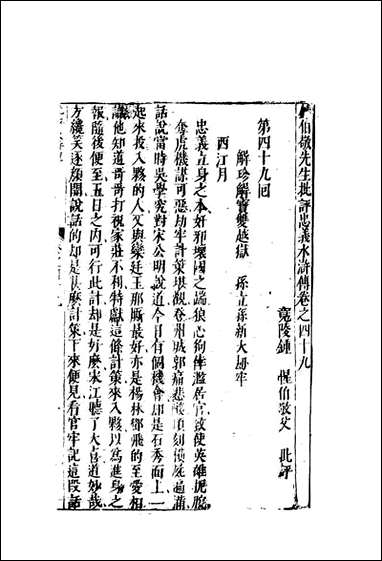 伯敬先生批評忠義水滸傳卷之四十九
竟陵鍾 惺伯敬父 批評
第四十九回
解珍解寶雙越獄 孫立孫新大劫牢
西江月
忠義立身之本奸邪壞國之端狼心狗倖濫居官致使英雄扼腕
奪虎機謀可惡劫牢計策堪觀登州城郭痛悲酸頃刻橫屍遍滿
話說當時吳學究對宋公明說道今日有個機會却是石秀面上一
起來投入夥的人又與欒廷玉那厮最好亦是楊林鄧飛的至愛相
識他知道哥哥打祝家莊不利特獻這條計策來入夥以爲進身之
報隨後便至五日之內可行此計却是好麼宋江聽了大喜道妙哉
方纔笑逐顏開說話的却是甚麼計策下來便見看官牢記這段話